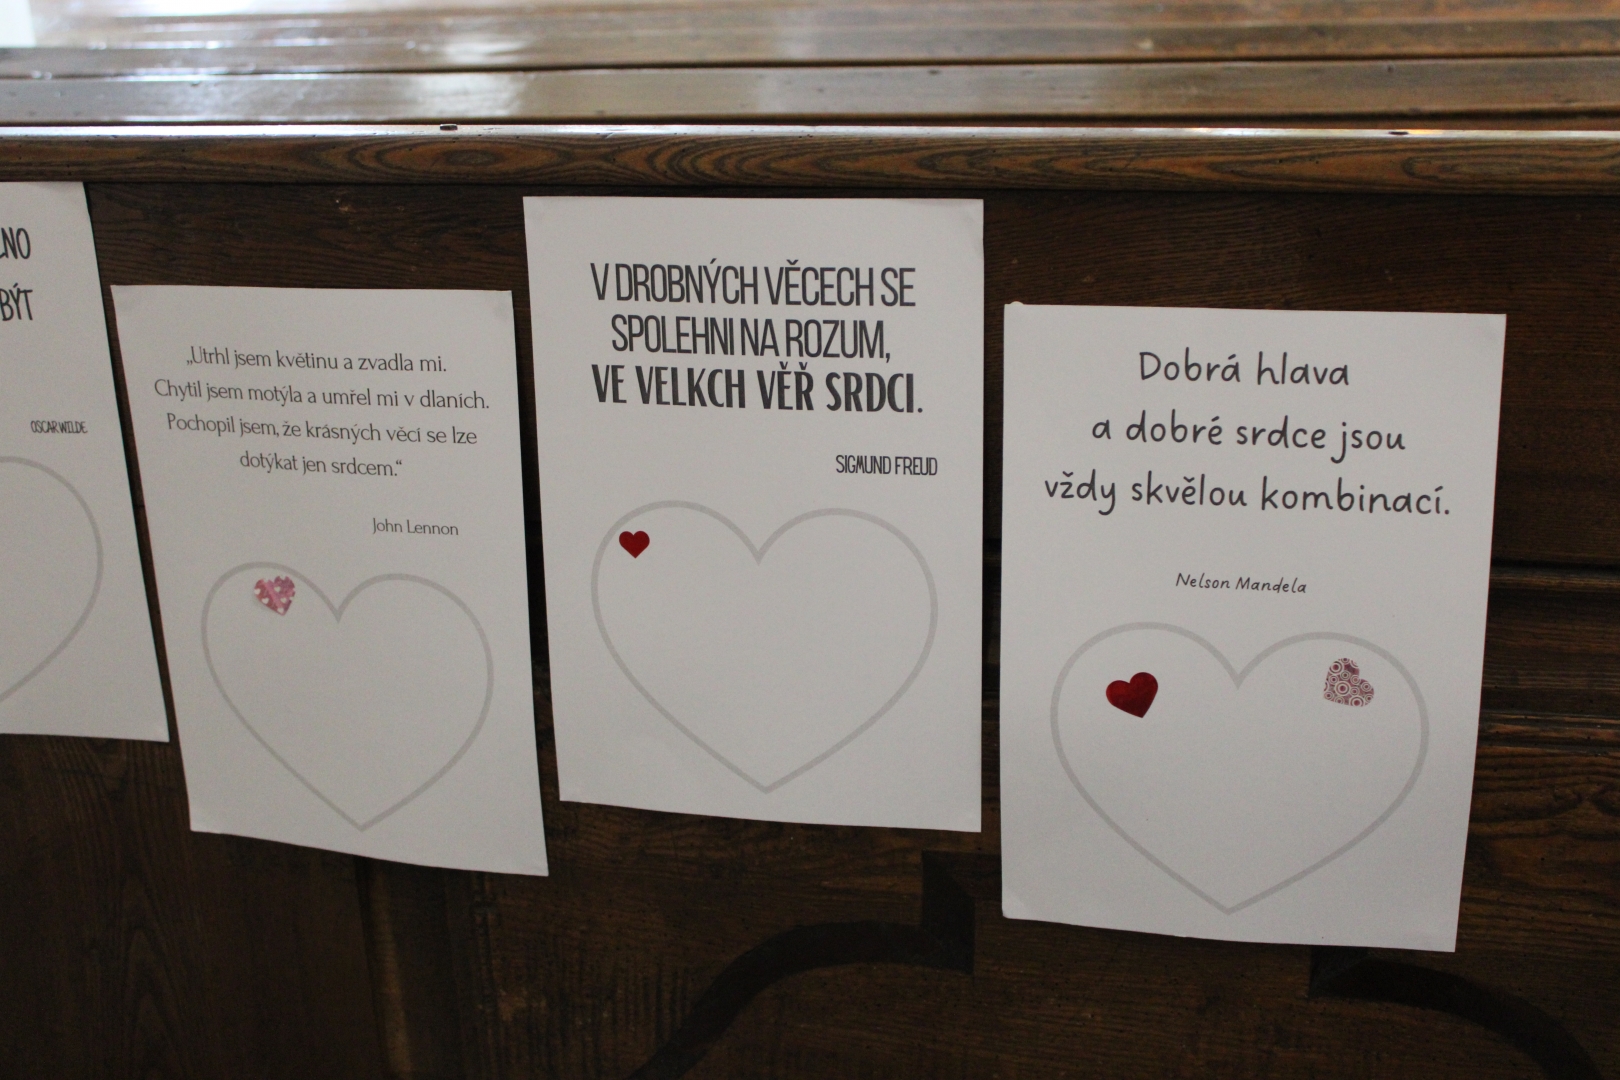 BÝT
OSCAR WILDE
„Utrhl jsem květinu a zvadla mi.
Chytil jsem motýla a umřel mi v dlaních.
Pochopil jsem, že krásných věcí se lze
dotýkat jen srdcem.“
John Lennon
V DROBNÝCH VĚCECH SE
SPOLEHNI NA ROZUM,
VE VELKCH VĚŘ SRDCI.
SIGMUND FREUD
Dobrá hlava
a dobré srdce jsou
vždy skvělou kombinací.
Nelson Mandela